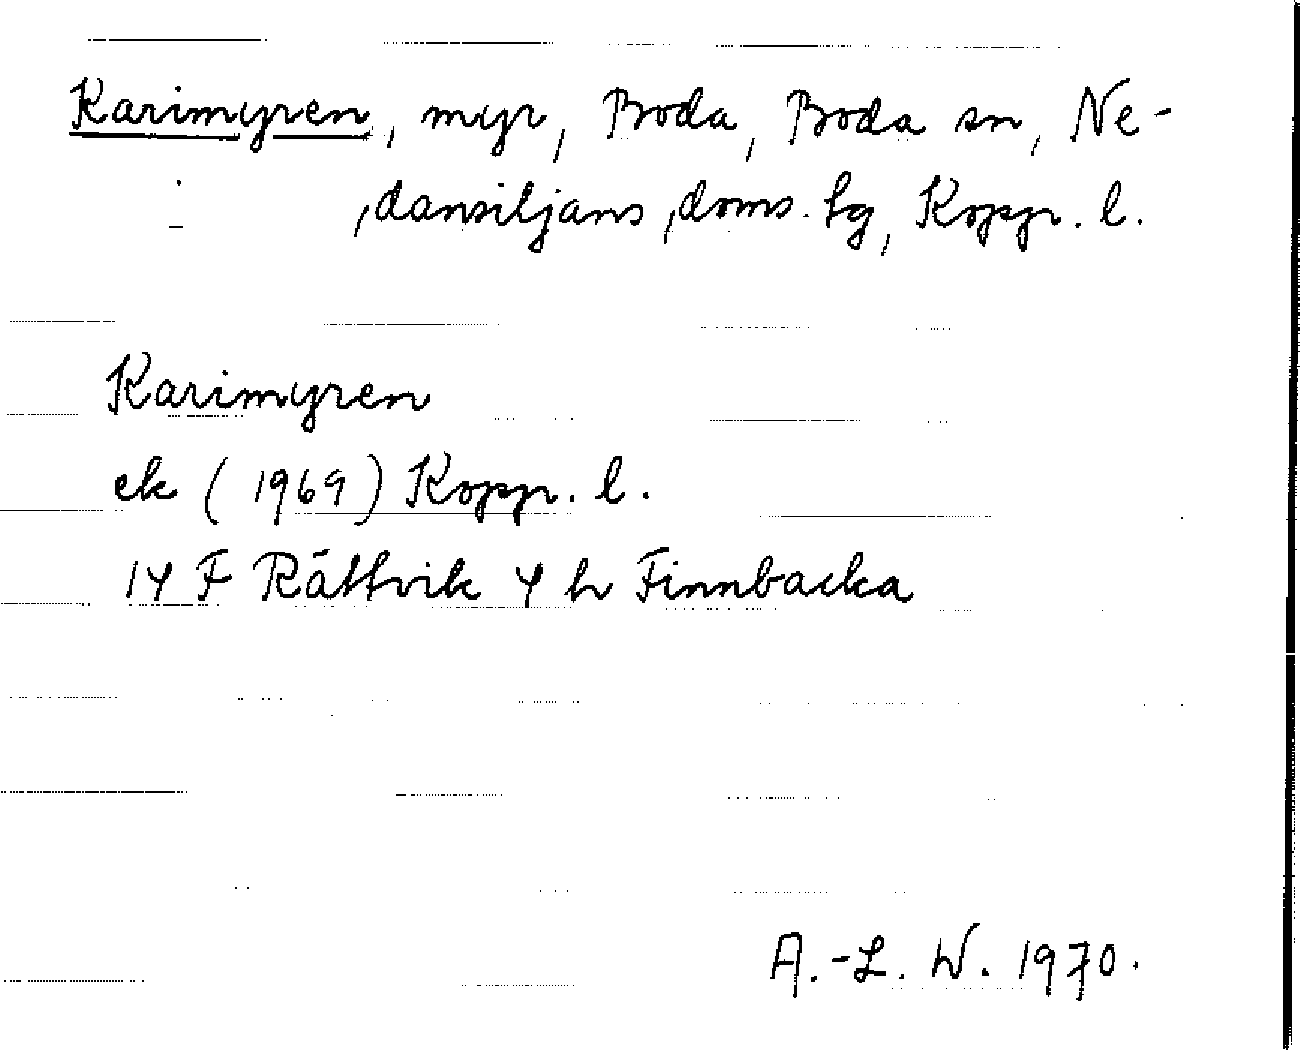 Karimyren, myr, Boda, Boda sn, Ne-
dansiljans doms. tg, Kopp. l.
Karimyren
ek (1969) Kopp. l.
14 F Rättvik 4 h Finnbacka
A.-L. W. 1970.